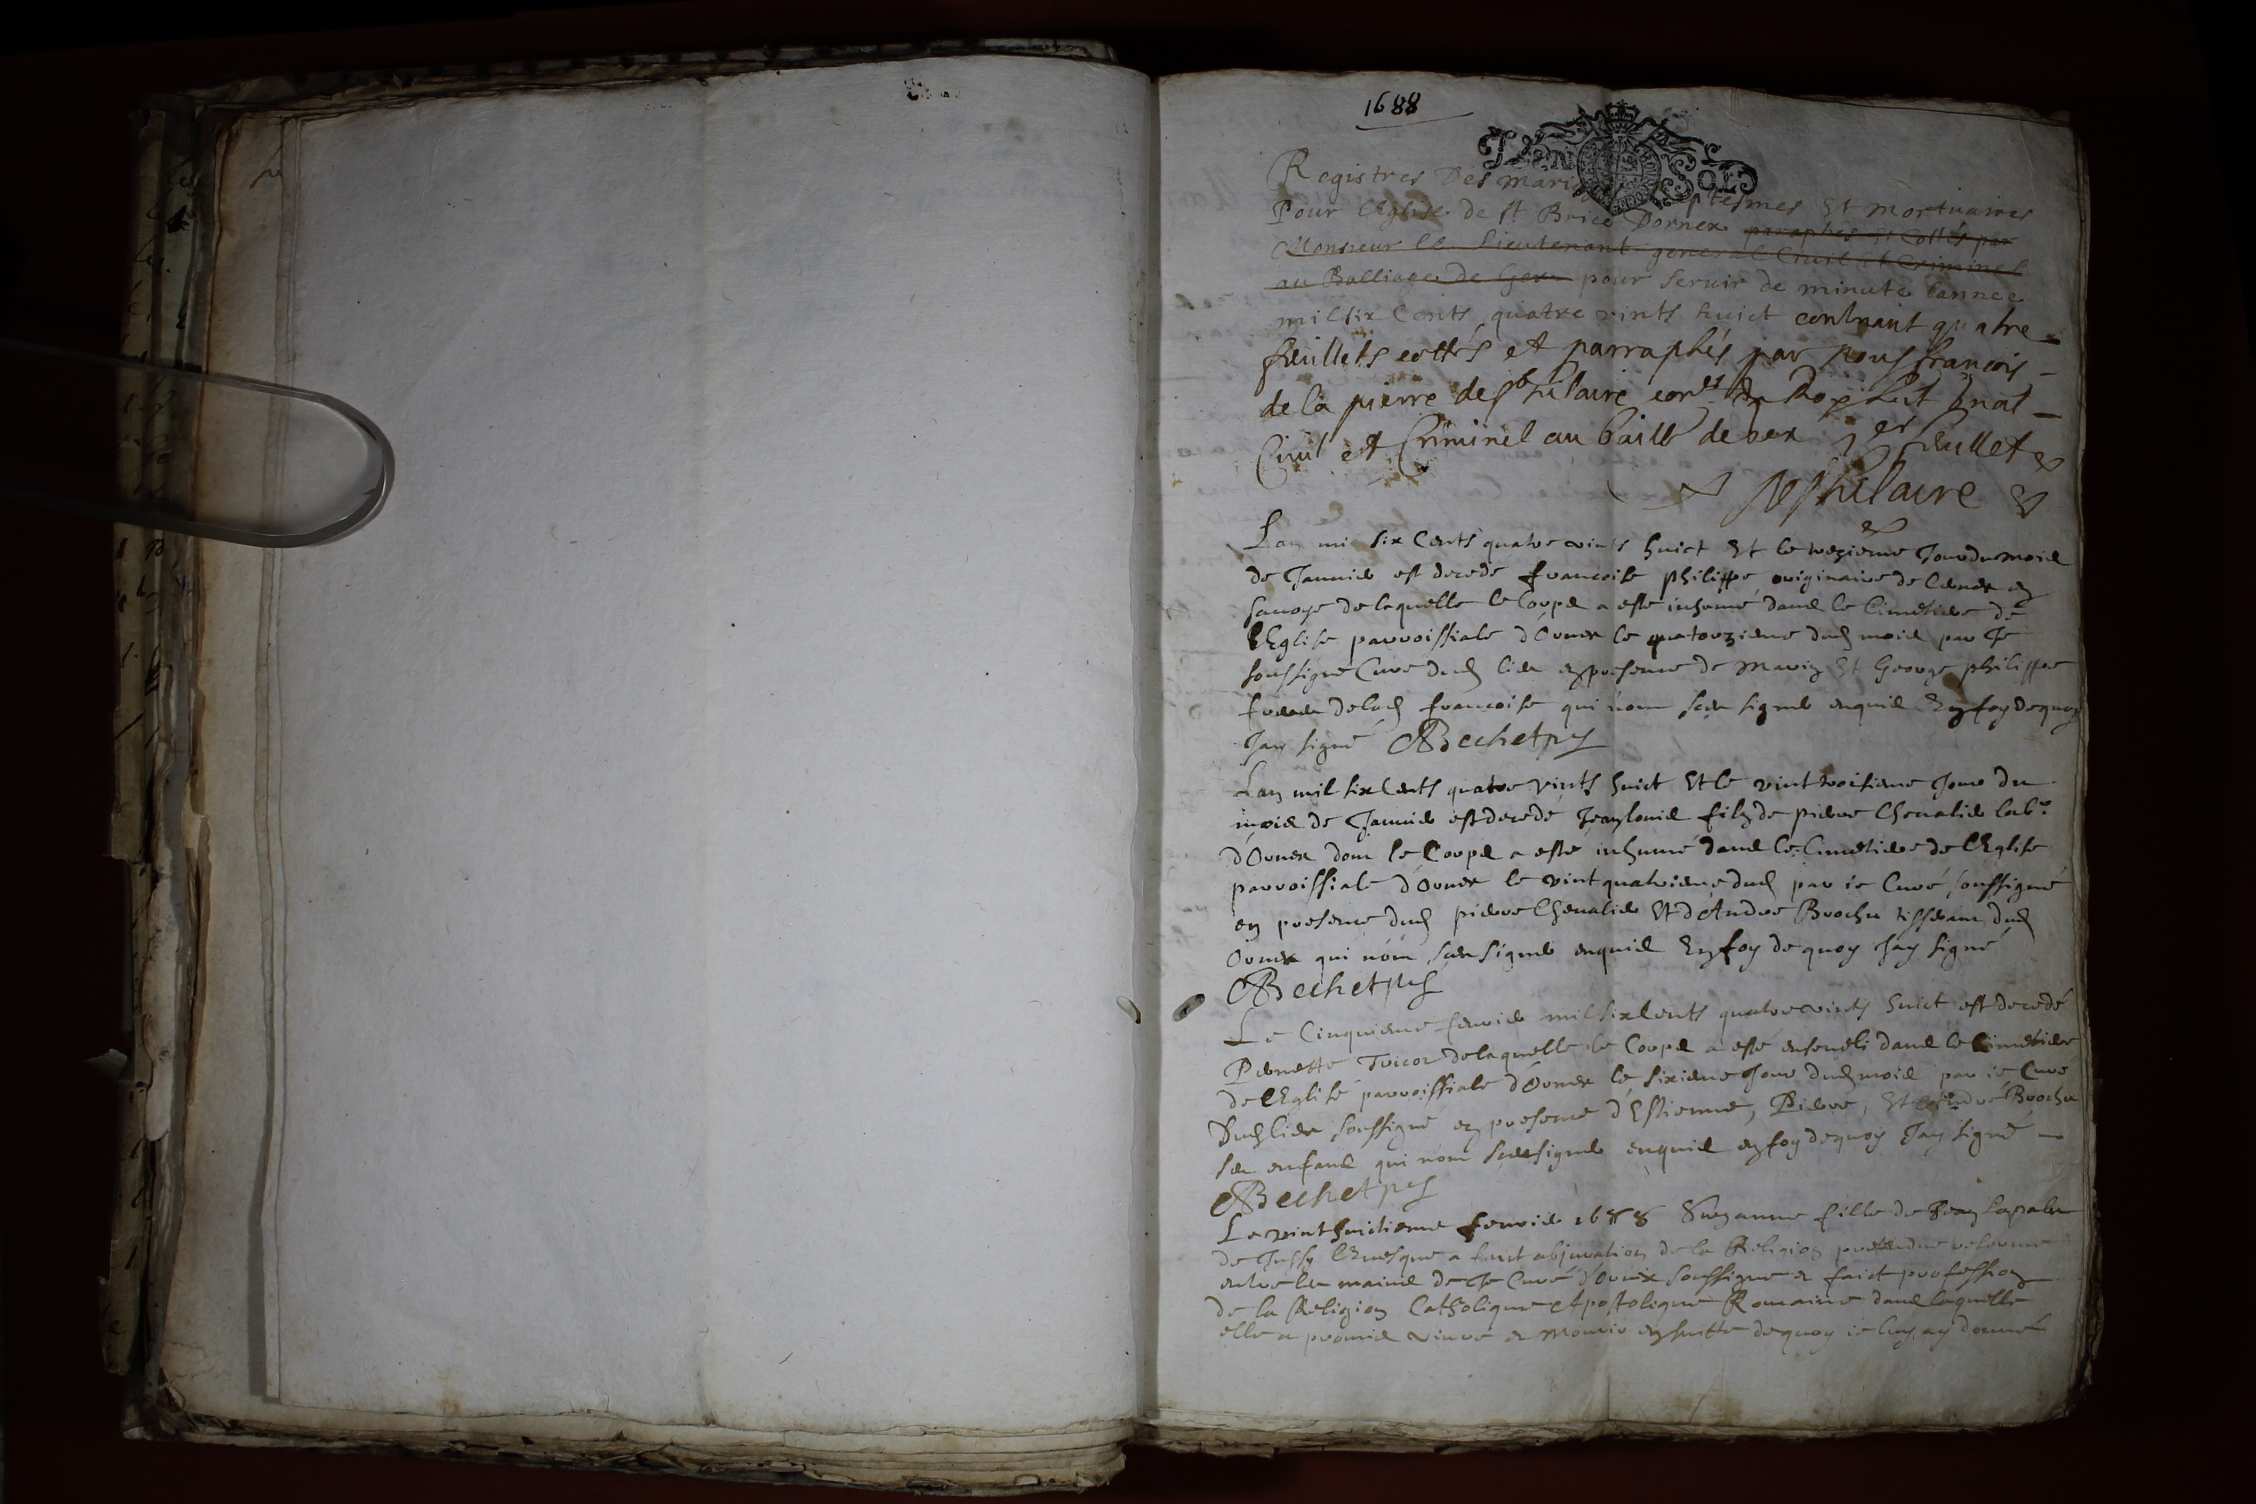 1688
Registres Des Maria ptesmes Et Mortuaires
Pour l'Eglise de St Brice Dornex paraphés et Cottés par
Monsieur le Lieutenant general Civil et Criminel
au Balliage de Gex pour servir de minute lannee
mil six Cents quatre vints huict contenant quatre
feuillets cottés et parraphés par nous francois
de la pierre de St hilaire conr du Roy Lieut gnal
Civil et Criminel au baille de gex 1er feuillet
De St hilaire
Lan mil six Cents quatre vints huict Et le trezieme Jour du mois
de Janvier est decede francoise philippe originaire de en
savoye de laquelle le Corps a esté inhumé dans le Cimetiere de
l'Eglise parroissiale d'Ornex le quatorzieme dud mois par Je
soussigné Curé dud lieu en presence de Et George philippe
freres de lad francoise qui nont sceu signer enquis En foy de quoy
Jay signé Bechet
Lan mil six Cents quatre vints huict Et le vint troisieme Jour du
mois de Janvier est decedé Jean louis filz de pierre Chevalier labr
d'Ornex dont le Corps a esté inhumé dans le Cimetiere de l'Eglise
parroissiale d'Ornex le vint quatrieme dud par ie Curé soussigné
en presence dud pierre Chevalier Et d'Andre Brochu tisserant dud
Ornex qui nont sceu signer enquis En foy de quoy Jay signé
Bechet
Le Cinquieme fevrier mil six Cents quatre vints huict est decedé
Pernette de laquelle le Corps a esté enseveli dans le Cimetiere
de l'Eglise parroissiale d'Ornex le sixieme Jour dud mois par ie Curé
Dud lieu soussigné en presence d'Estienne, Pierre, Et Andre Brochu
ses enfans qui nont sceu signer enquis en foy de quoy Jay signé
Bechet
Le vint huitieme fevrier 1688 Suzanne fille de Jean Lapalu
de Jussy l'Evesque a faict abjuration de la Religion pretendue reformé
entre les mains de Je Curé d'Ornex soussigné et faict profession
de la Religion Catholique Apostolique Romaine dans laquelle
elle a promis vivre et mourir ensuitte de quoy ie luy ay donné